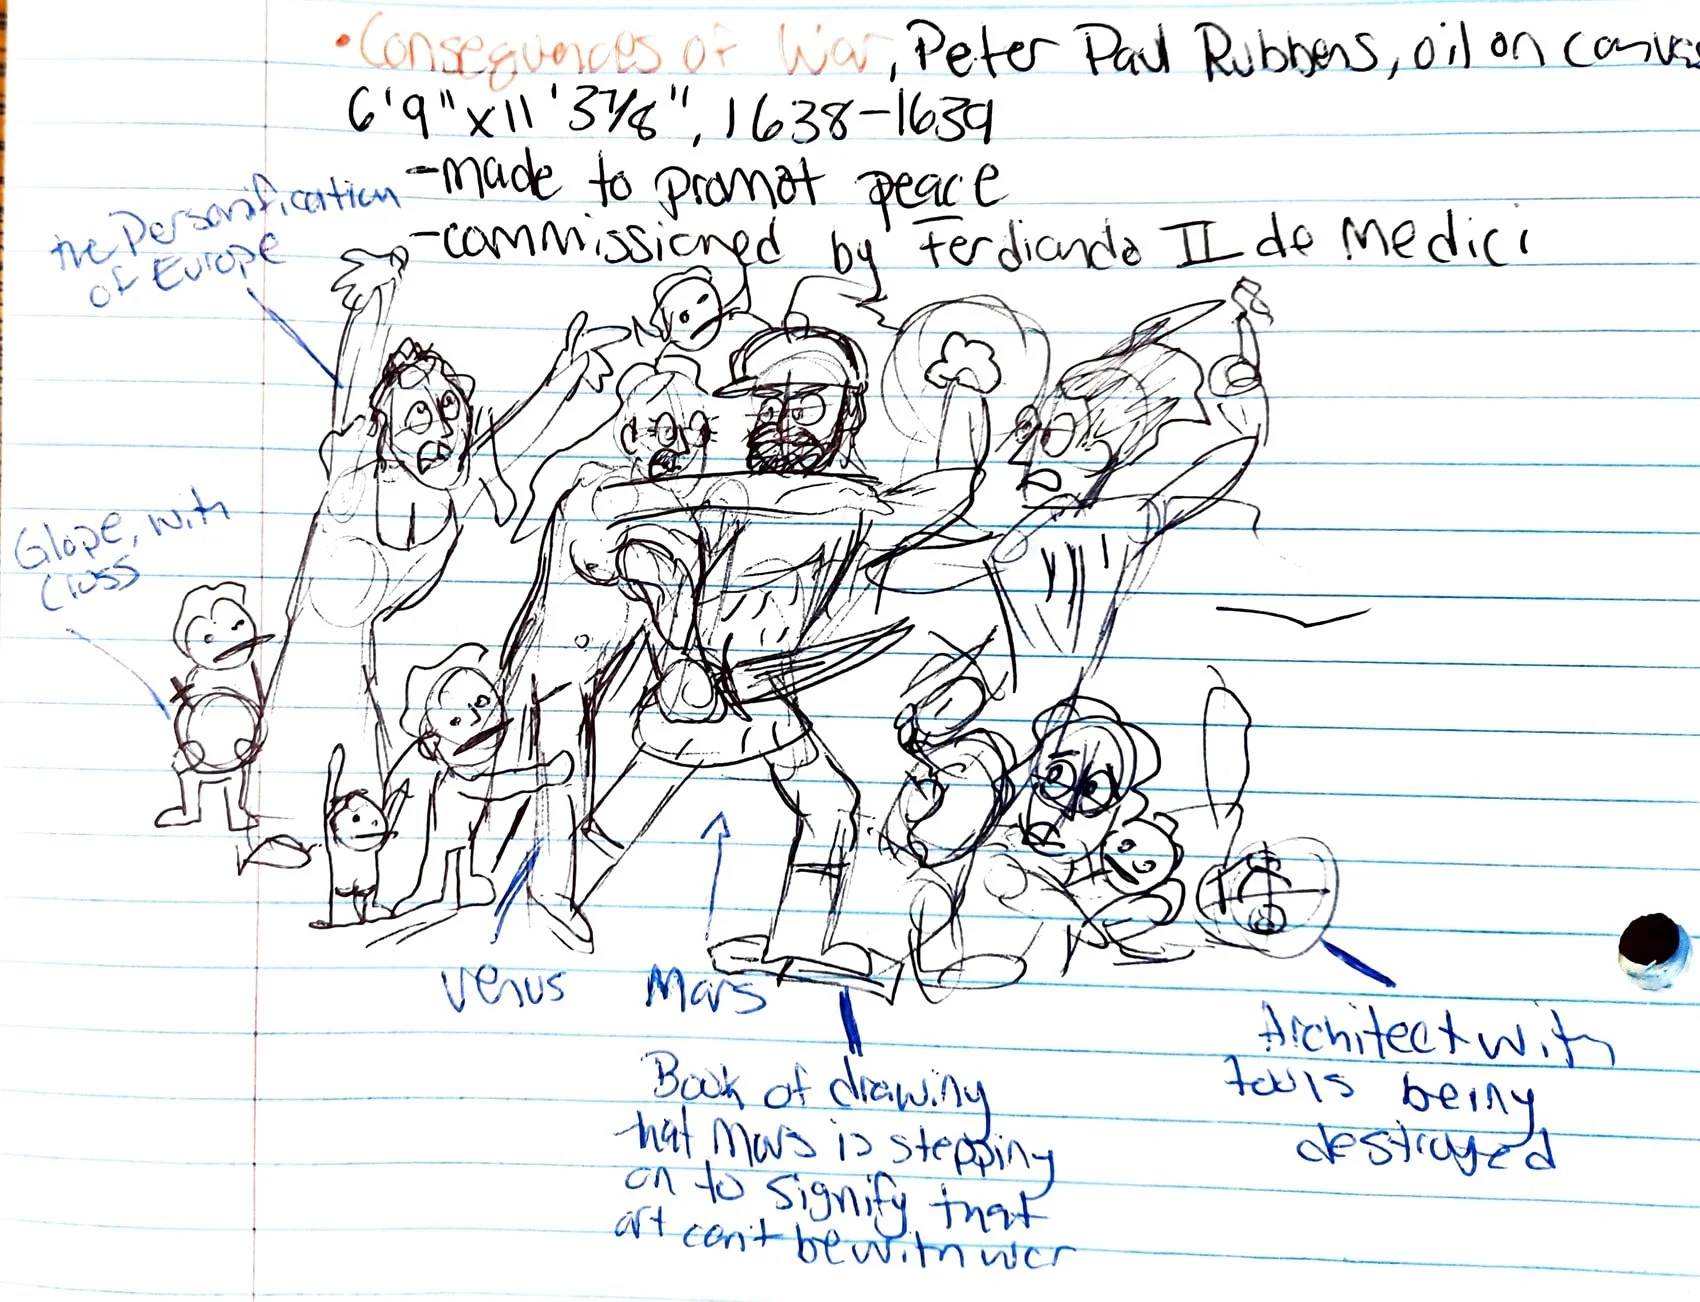 •Consequences of War, Peter Paul Rubbens, oil on canvas
6'9"x11'3 7/8", 1638-1639
-made to promot peace
-commissioned by Ferdianda II de Medici
the Personification
of Europe
Glope, with
Cross
Venus
Mars
Book of drawing
that Mars is stepping
on to signify that
art can't be with war
Architect with
tools being
destroyed